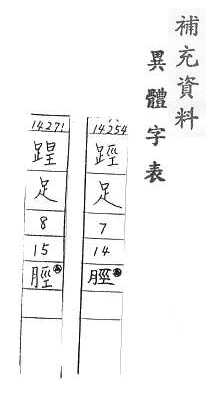 補充資料
異體字表
14254
踁
足
7
14
脛
14271
足
8
15
脛